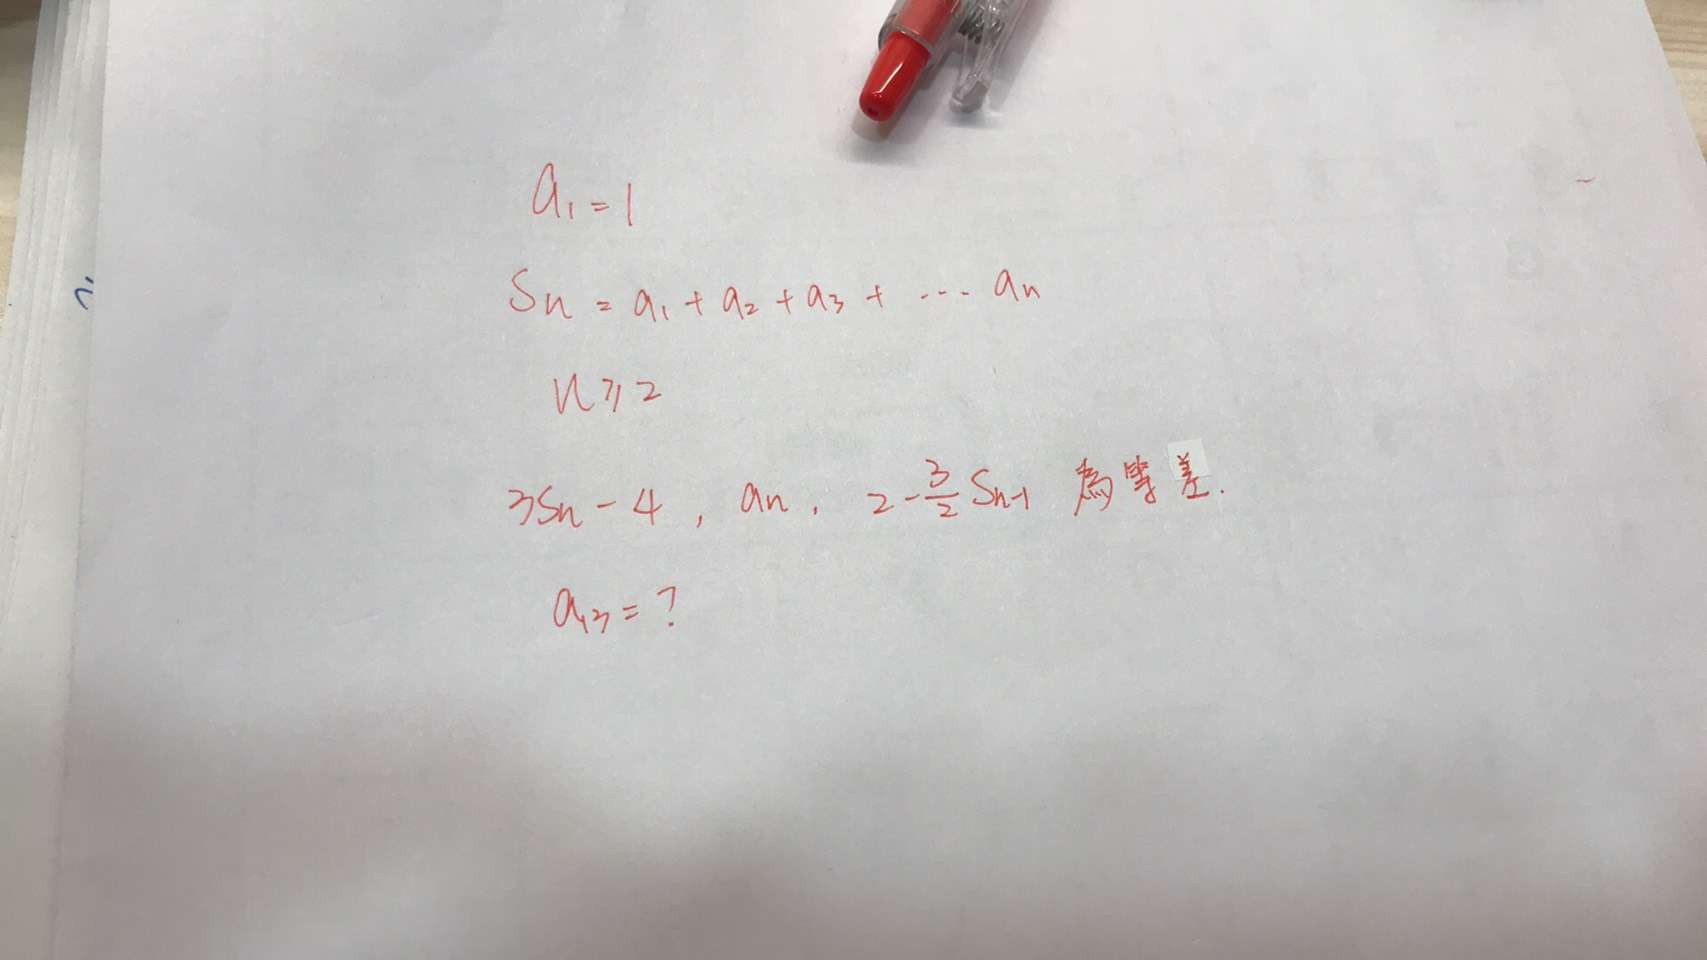 a₁ = 1
Sn = a₁ + a₂ + a₃ + ... an
n ≥ 2
3Sn - 4 , an , 2 - 3/2 Sn-1 為等差.
a₁₃ = ?